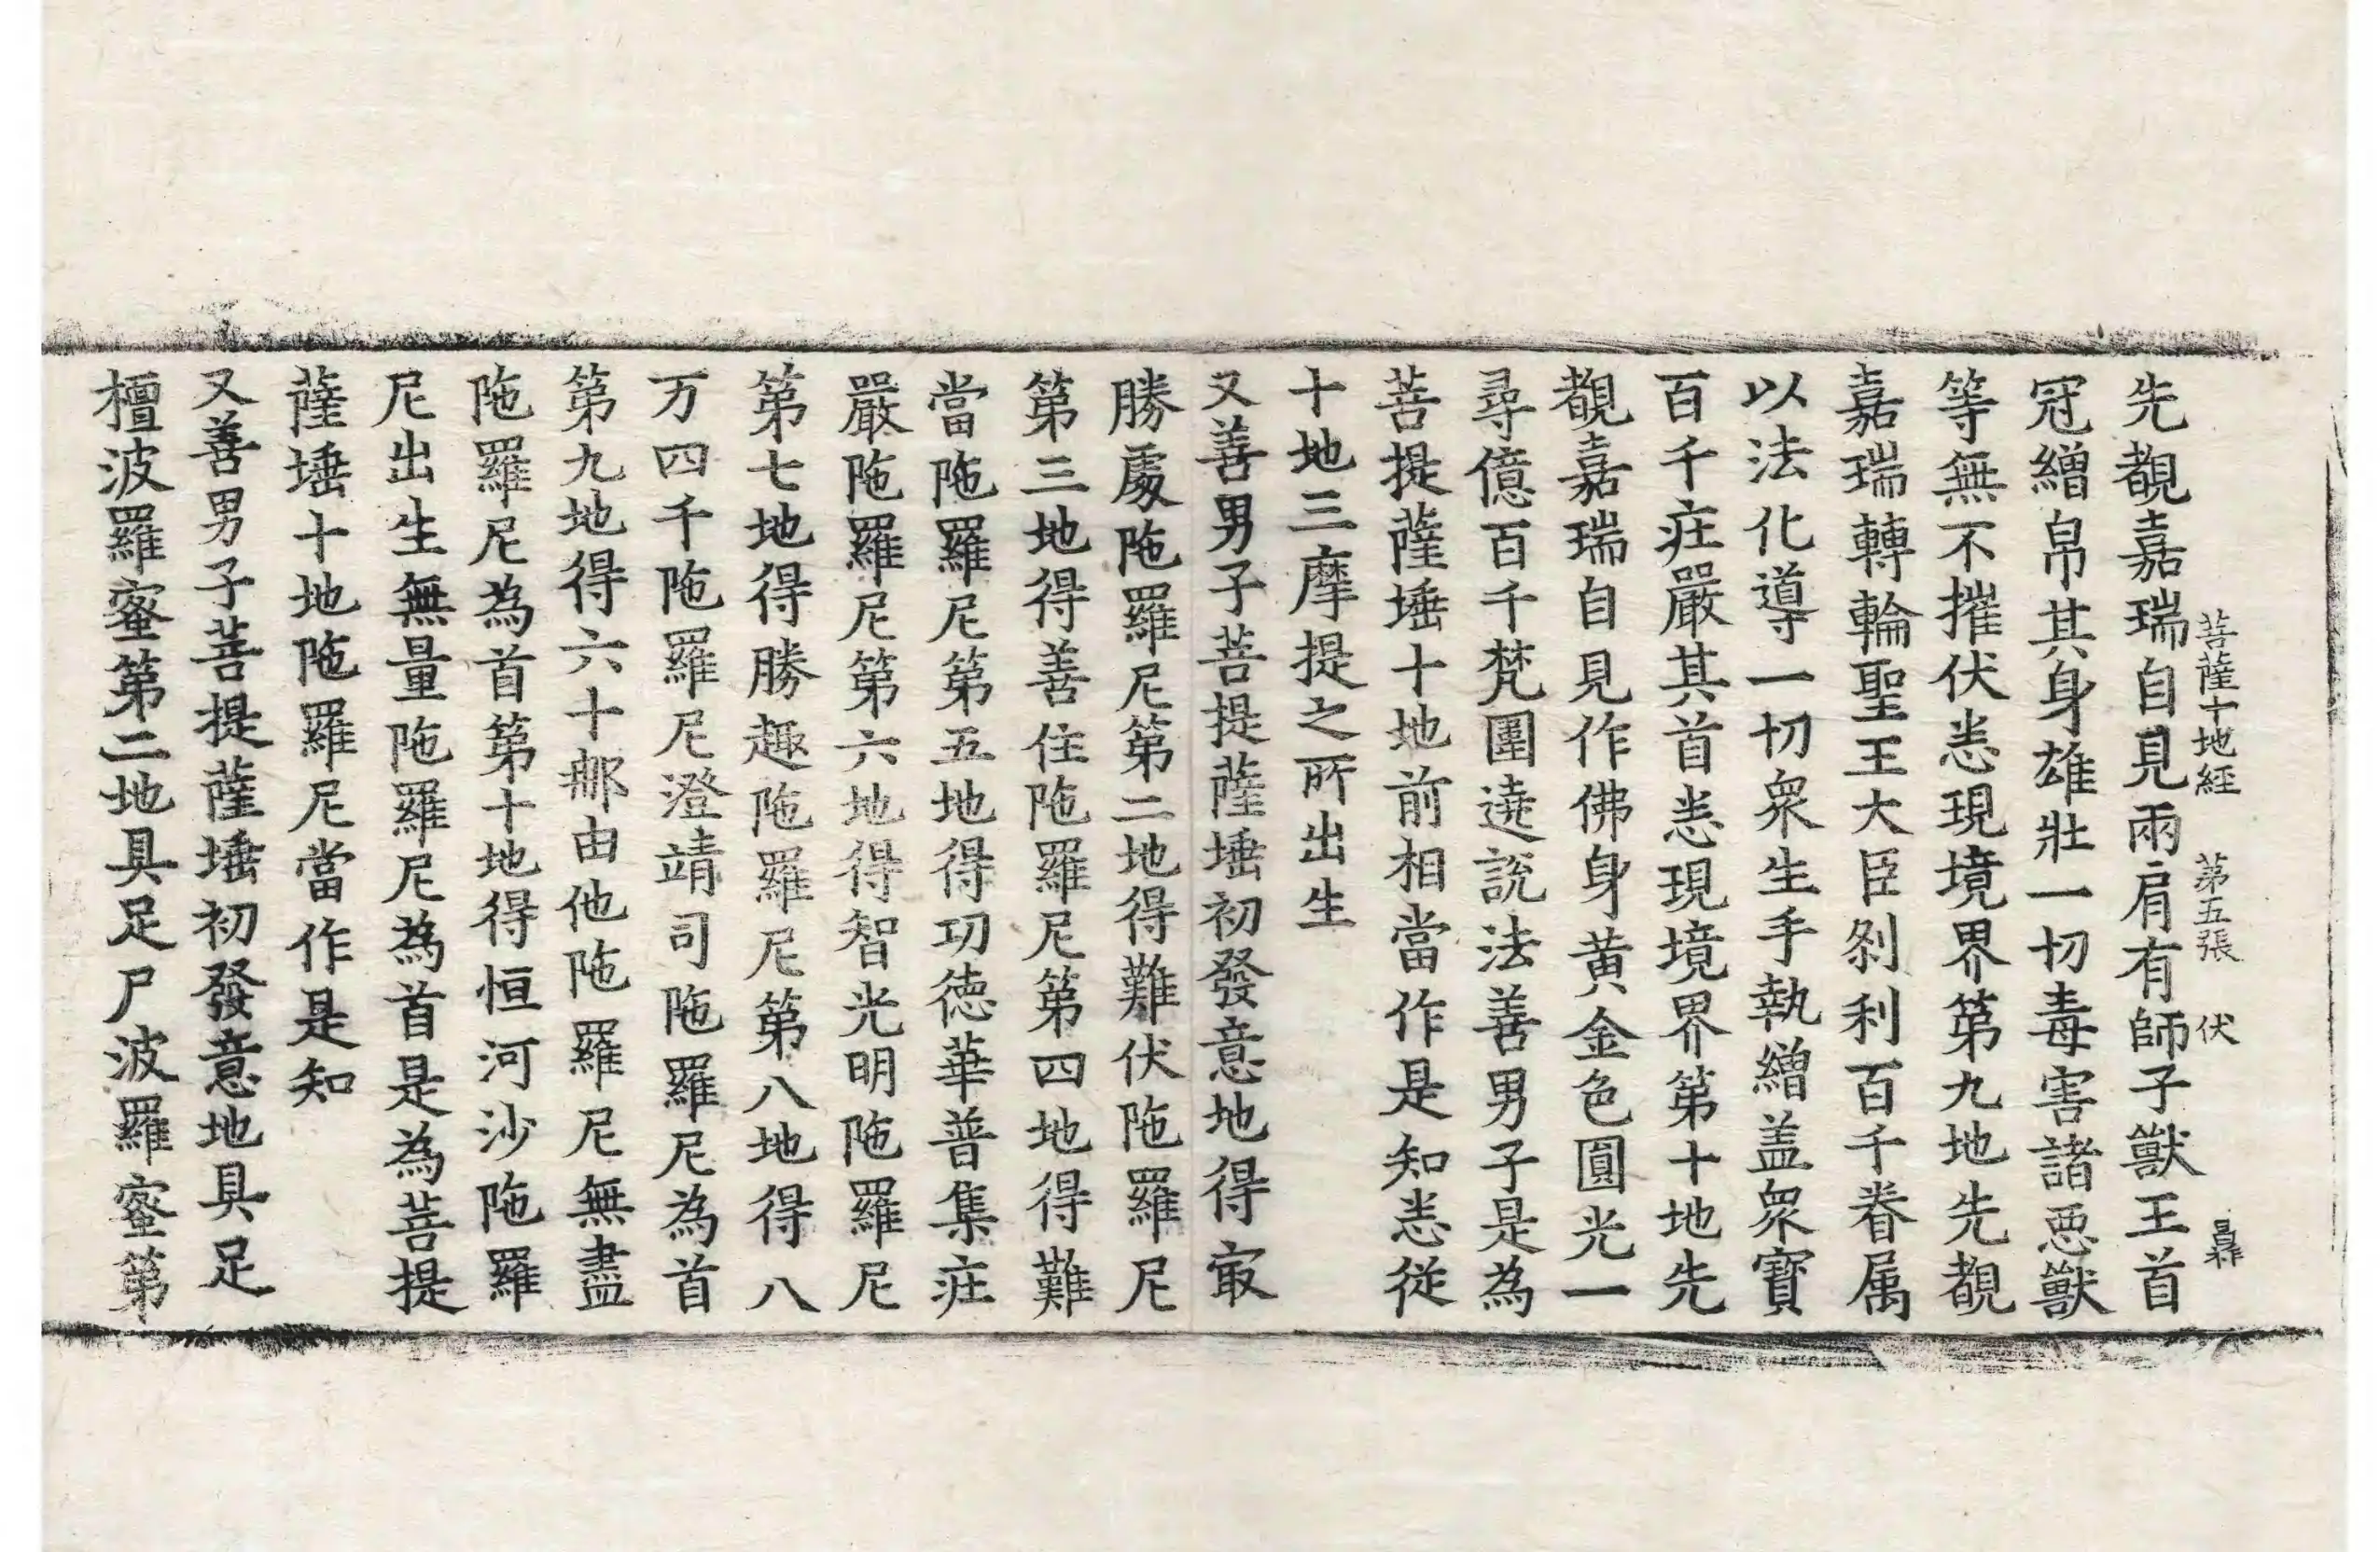 菩薩十地經　第五張　伏
先覩嘉瑞自見兩肩有師子獸王首
冠繒帛其身雄壯一切毒害諸惡獸
等無不摧伏悉現境界第九地先覩
嘉瑞轉輪聖王大臣刹利百千眷属
以法化導一切衆生手執繒盖衆寶
百千疘嚴其首悉現境界第十地先
覩嘉瑞自見作佛身黄金色圓光一
尋億百千梵圍遶說法善男子是為
菩提薩埵十地前相當作是知悉從
十地三摩提之所出生
又善男子菩提薩埵初發意地得㝡
勝處陁羅尼第二地得難伏陁羅尼
第三地得善住陁羅尼第四地得難
當陁羅尼第五地得功德華普集疘
嚴陁羅尼第六地得智光明陁羅尼
第七地得勝趣陁羅尼第八地得八
万四千陁羅尼澄靖司陁羅尼為首
第九地得六十那由他陁羅尼無盡
陁羅尼為首第十地得恒河沙陁羅
尼出生無量陁羅尼為首是為菩提
薩埵十地陁羅尼當作是知
又善男子菩提薩埵初發意地具足
檀波羅蜜第二地具足尸波羅蜜第